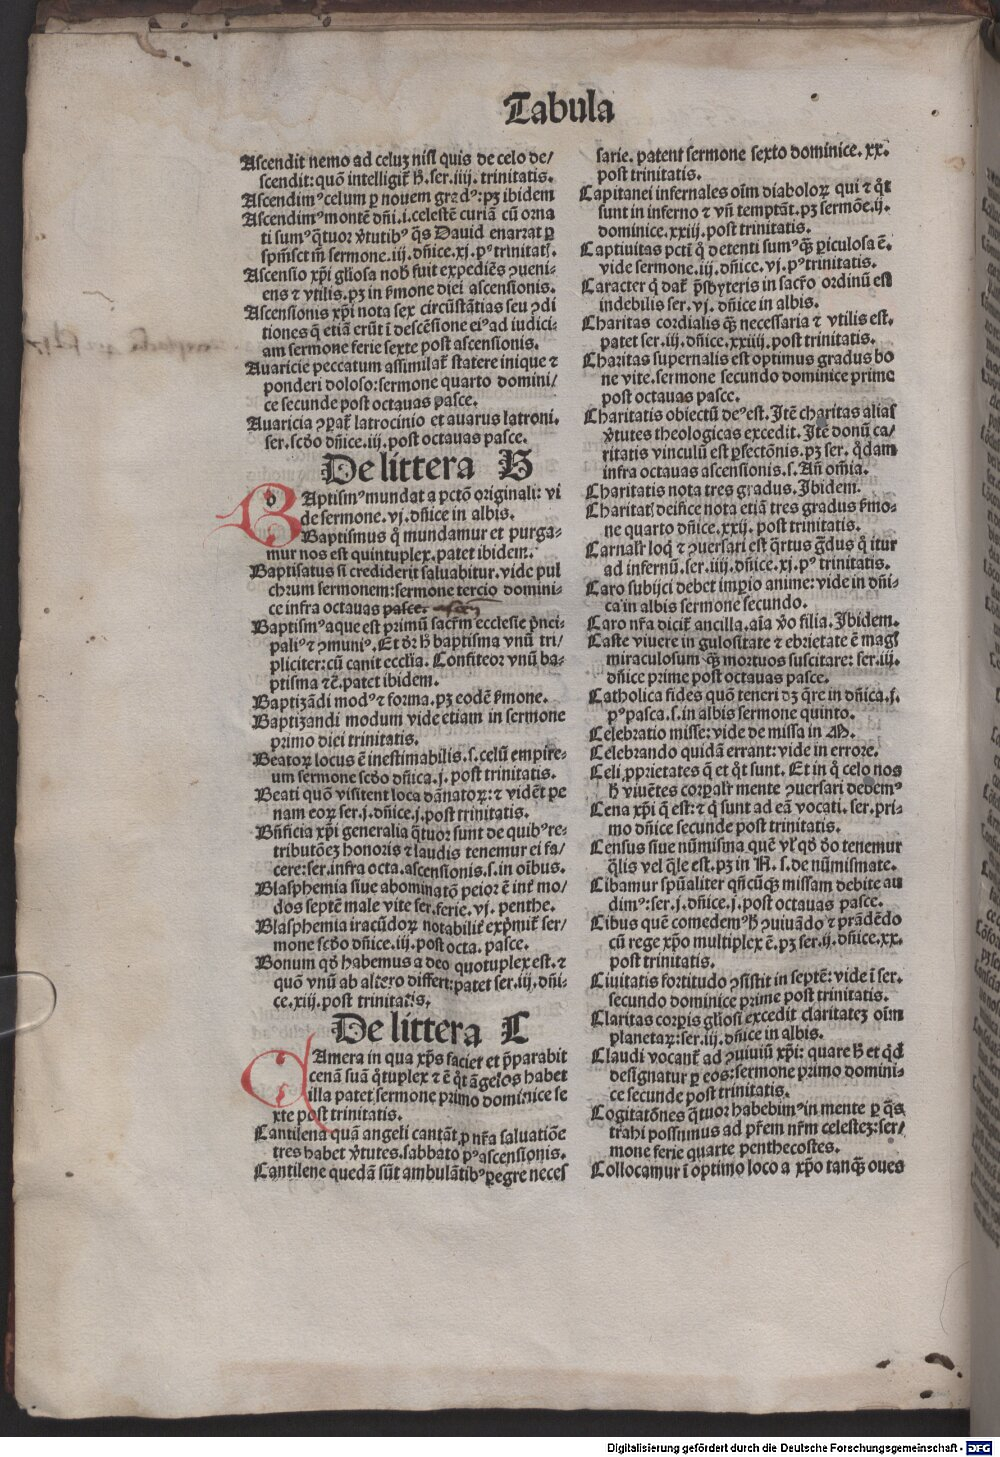 Tabula
Ascendit nemo ad celuʒ nisi quis de celo de/
scendit: quō intelligit᷑ h̄. ser. iiij. trinitatis.
Ascendimꝰ celum ꝑ nouem gradꝰ: pʒ ibidem
Ascendimꝰ montē dn̄i .i. celestē curiā cū orna
ti sumꝰ q̄tuor v̓tutibꝰ q̄s Dauid enarrat ꝑ
sermone. iij. dn̄ice. xj. pꝰ trinitat.
Ascensio xp̄i gl̄iosa nob̄ fuit expediēs ꝯueni-
ens ⁊ vtilis. pʒ in ẜmone diei ascensionis.
Ascensionis xp̄i nota sex circūstātias seu ꝯdi
tiones q̄ etiā erūt ī descēsione eiꝰ ad iudici-
am sermone ferie sexte post ascensionis.
Auaricie peccatum assimilat᷑ statere inique ⁊
ponderi doloso: sermone quarto domini/
ce secunde post octauas pasce.
Auaricia ꝯꝑat᷑ latrocinio et auarus latroni.
ser. scd̓o dn̄ice. iij. post octauas pasce.
De littera B
b
Aptismꝰ mundat a pctō originali: vi
de sermone. vj. dn̄ice in albis.
Baptismus q̊ mundamur et purga-
mur nos est quintuplex. patet ibidem.
Baptisatus si crediderit saluabitur. vide pul
chrum sermonem: sermone tercio domini-
ce infra octauas pasce.
Baptismꝰ aque est primū sacr̄m ecclesie p̄nci-
paliꝰ ⁊ ꝯmuniꝰ. Et dr̄ h̄ baptisma vnū tri/
pliciter: cū canit eccl̄ia. Confiteor vnū ba-
ptisma ⁊c̄. patet ibidem.
Baptizādi modꝰ ⁊ forma. pʒ eodē ẜmone.
Baptizandi modum vide etiam in sermone
primo diei trinitatis.
Beatoꝝ locus ē inestimabilis. s. celū empire-
um sermone scd̓o dn̄ica. j. post trinitatis.
Beati quō visitent loca dānatoꝝ: ⁊ vidēt pe
nam eoꝝ ser. j. dn̄ice. j. post trinitatis.
Bn̄ficia xp̄i generalia q̄tuor sunt de quibꝰ re-
tributōeʒ honoris ⁊ laudis tenemur ei fa/
cere: ser. infra octa. ascensionis. s. in oībus.
Blasphemia siue abominatō peior ē int᷑ mo/
dos septē male vite ser. ferie. vj. penthe.
Blasphemia iracūdoꝝ notabilit᷑ exp̄mit᷑ ser/
mone scd̓o dn̄ice. iij. post octa. pasce.
Bonum qd̓ habemus a deo quotuplex est. ⁊
quō vnū ab altero differt: patet ser. iij. dn̄i-
ce. xiij. post trinitatis.
De littera C
Amera in qua xp̄s faciet et p̄parabit
cenā suā q̄tuplex ⁊ ē q̊t āgelos habet
illa patet sermone primo dominice se
xte post trinitatis.
Cantilena quā angeli cantāt ꝓ nr̄a saluatiōe
tres habet v̓tutes. sabbato pꝰ ascensionis.
Cantilene quedā sūt ambulātibꝰ ꝑegre neces
sarie. patent sermone sexto dominice. xx.
post trinitatis.
Capitanei infernales oīm diaboloꝝ qui ⁊ q̊t
sunt in inferno ⁊ vn̄ temptāt. pʒ sermōe. ij.
dominice. xxiij. post trinitatis.
Captiuitas pcti q̄ detenti sumꝰ q̄ꝫ ꝑiculosa ē.
vide sermone. iij. dn̄ice. vj. pꝰ trinitatis.
Caracter q̄ dat᷑ p̄sbyteris in sacro ordinū est
indebilis ser. vj. dn̄ice in albis.
Charitas cordialis q̄ꝫ necessaria ⁊ vtilis est.
patet ser. iij. dn̄ice. xxiiij. post trinitatis.
Charitas supernalis est optimus gradus bo
ne vite. sermone secundo dominice prime
post octauas pasce.
Charitatis obiectū deꝰ est. Itē charitas alias
v̓tutes theologicas excedit. Itē donū ca/
ritatis vinculū est ꝑfectōnis. pʒ ser. q̄dam
infra octauas ascensionis. s. An̄ om̄ia.
Charitatis nota tres gradus. Ibidem.
Charitatꝭ deifice nota etiā tres gradus ẜmo-
ne quarto dn̄ice. xxij. post trinitatis.
Carnalr̄ loq̄ ⁊ ꝯuersari est q̄rtus ḡdus q̊ itur
ad infernū. ser. iiij. dn̄ice. xj. pꝰ trinitatis.
Caro subijci debet imꝑio anime: vide in dn̄i-
ca in albis sermone secundo.
Caro nr̄a dicit᷑ ancilla. aīa v̓o filia. Ibidem.
Caste viuere in gulositate ⁊ ebrietate ē magꝭ
miraculosum q̄ꝫ mortuos suscitare: ser. iij.
dn̄ice prime post octauas pasce.
Catholica fides quō teneri dʒ q̄re in dn̄ica. j.
pꝰ pasca. s. in albis sermone quinto.
Celebratio misse: vide de missa in M.
Celebrando quidā errant: vide in errore.
Celi ꝓprietates q̄ et q̊t sunt. Et in q̊ celo nos
h̄ viuētes corꝑalr̄ mente ꝯuersari debemꝰ
Cena xp̄i q̄ est: ⁊ q̊ sunt ad eā vocati. ser. pri-
mo dn̄ice secunde post trinitatis.
Census siue nūmisma quē vl̓ qd̓ do tenemur
q̄lis vel q̄le est. pʒ in N. s. de nūmismate.
Cibamur spūaliter qn̄cūq̄ꝫ missam debite au
dimꝰ: ser. j. dn̄ice. j. post octauas pasce.
Cibus quē comedemꝰ h̄ ꝯuiuādo ⁊ prādēdo
cū rege xp̄o multiplex ē. pʒ ser. ij. dn̄ice. xx.
post trinitatis.
Ciuitatis fortitudo ꝯsistit in septē: vide ī ser.
secundo dominice prime post trinitatis.
Claritas corꝑis gl̄iosi excedit claritateʒ oīm
planetaꝝ: ser. iij. dn̄ice in albis.
Claudi vocant᷑ ad ꝯuiuiū xp̄i: quare h̄ et q̊d
designatur ꝑ eos: sermone primo domini-
ce secunde post trinitatis.
Cogitatōnes q̄tuor habebimꝰ in mente ꝑ q̄s
trahi possumus ad pr̄em nr̄m celesteʒ: ser/
mone ferie quarte penthecostes.
Collocamur ī optimo loco a xp̄o tanq̄ꝫ oues
Digitalisierung gefördert durch die Deutsche Forschungsgemeinschaft - DFG